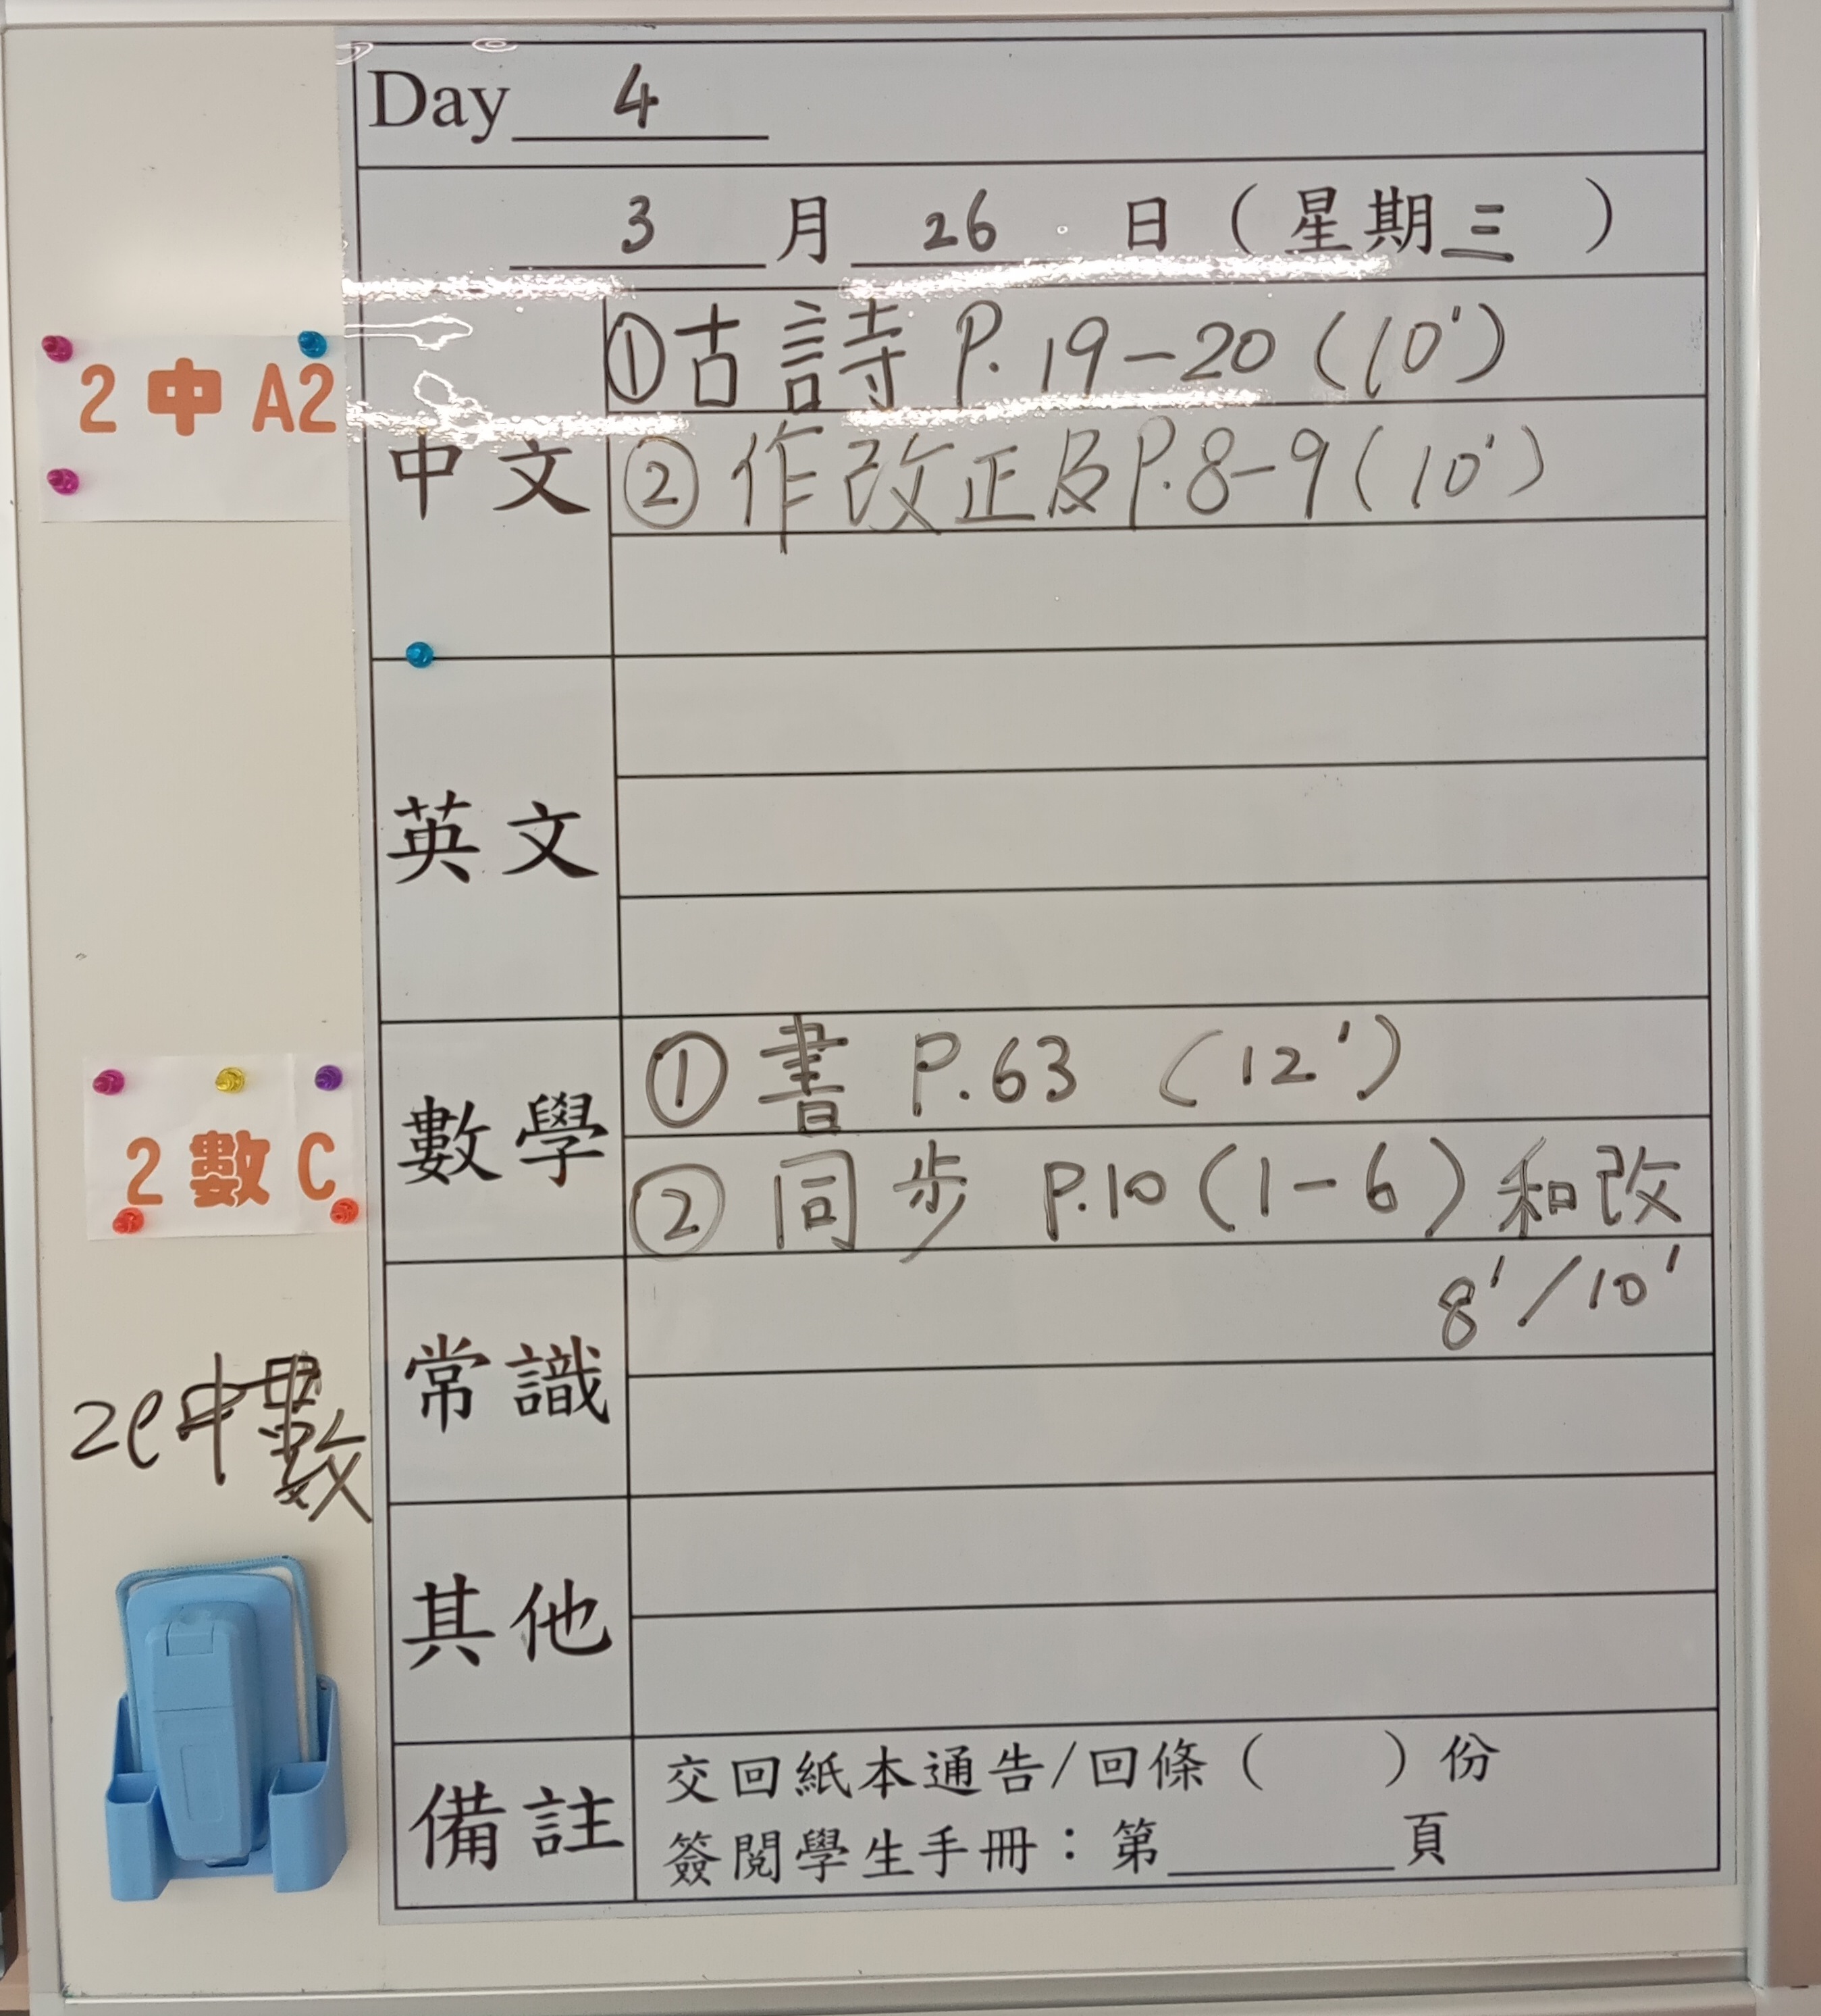 Day 4
3 月 26 日（星期三）
2 中 A2
中文
①古詩 P.19-20 (10')
②作改正及P.8-9 (10')
英文
2 數 C
數學
① 書 P.63 (12')
② 同步 P.10 (1-6) 和改
8'/10'
2e中數
常識
其他
備註
交回紙本通告/回條（ ）份
簽閱學生手冊：第 頁